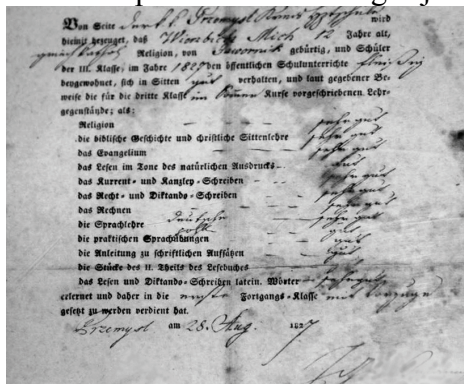 Von Seite der k. k. Przemysl Kreis Hauptschule wird
hiemit bezeuget, daß Mich 12 Jahre alt,
Religion, von Jawornik gebürtig, und Schüler
der III. Klasse, im Jahre 1827 den öffentlichen Schulunterrichte fleißig
beygewohnt, sich in Sitten gut verhalten, und laut gegebener Be-
weise die für die dritte Klasse im Kurse vorgeschriebenen Lehr-
gegenstände; als:
Religion sehr gut
die biblische Geschichte und christliche Sittenlehre sehr gut
das Evangelium sehr gut
das Lesen im Tone des natürlichen Ausdrucks gut
das Kurrent- und Kanzley-Schreiben sehr gut
das Recht- und Diktando-Schreiben sehr gut
das Rechnen sehr gut
die Sprachlehre deutsche sehr gut
die praktischen Sprachübungen gut
die Anleitung zu schriftlichen Aufsätzen gut
die Stücke des II. Theils des Lesebuches gut
das Lesen und Diktando-Schreiben latein. Wörter sehr gut
erlernet und daher in die erste Fortgangs-Klasse mit Vorzuge
gesetzt zu werden verdient hat.
Przemysl am 28. Aug. 1827